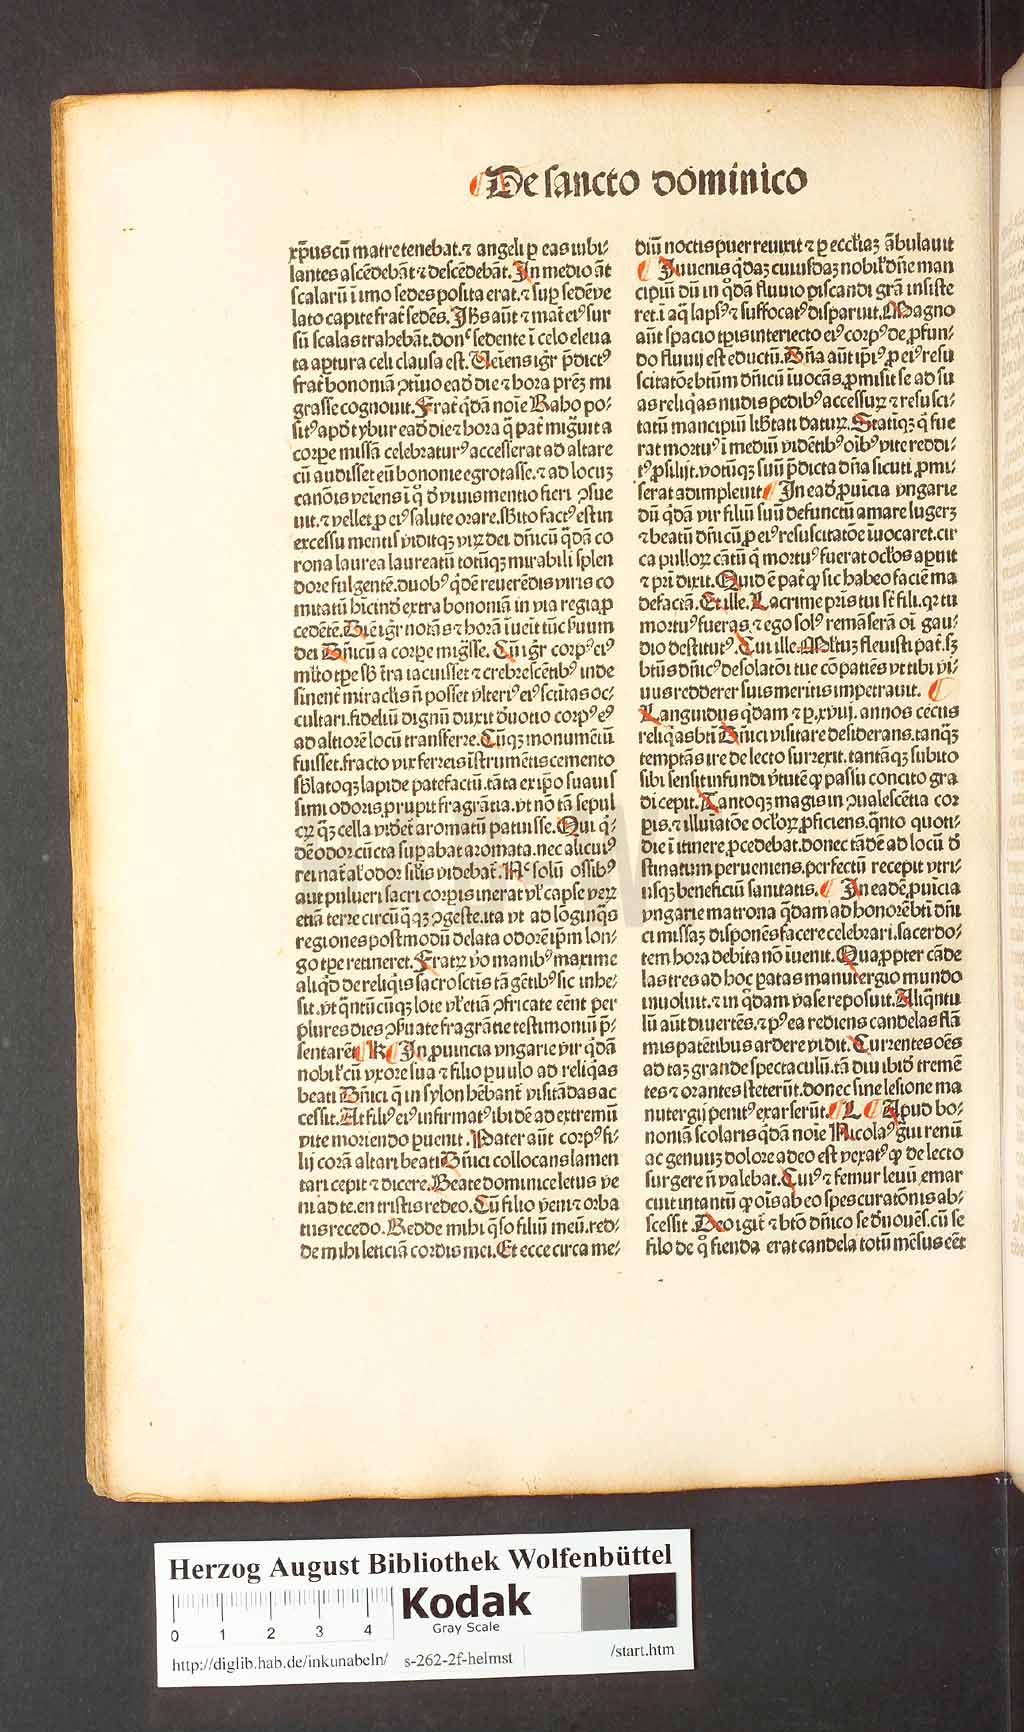 De sancto dominico
xp̄us cū matre tenebat. ⁊ angeli ꝑ eas iubi⸗
lantes ascēdebāt ⁊ descēdebāt. In medio āt
scalarū ī imo sedes posita erat. ⁊ suꝑ sedē ve
lato capite frat̄ sedēs. Ihs aūt ⁊ mat̄ eiꝰ sur
sū scalas trahebāt. donᶜ sedente ī celo eleua
ta aꝑtura celi clausa est. Ueiens igr̄ p̄dictꝰ
frat̄ bononiā ꝯtinuo eadē die ⁊ hora prēꝫ mi
grasse cognouit. Frat̄ q̇dā noīe Raho po⸗
sitꝰ apd̄ tybur eadē die ⁊ hora q̄ pat̄ migᷓuit a
corpe missā celebraturꝰ accesserat ad altare
cū audisset eū bononie egrotasse. ⁊ ad locuꝫ
canōis veīens ī q̊ d̄ viuis mentio fieri ꝯsue
uit. ⁊ vellet ꝓ eiꝰ salute orare. sb̄ito factꝰ est in
excessu mentis viditqꝫ viꝝ dei dn̄icū q̇dā co
rona laurea laureatū totūqꝫ mirabili splen
dore fulgentē. duobꝰ q̇dē reuerēdis viris co
mitatū hīcind̄ extra bononiā in via regia ꝓ
cedēte. Diē igr̄ notās ⁊ horā īueīt tūc s̄uum
dei Dn̄icū a corpe migᷓsse. Cū igr̄ corpꝰ eiꝰ
ml̄to tꝑe sb̄ t̄ra iacuisset ⁊ crebrescētibꝰ inde
sinent̄ miracl̄is n̄ posset vlteriꝰ eiꝰ scītas oc⸗
cultari. fideliū dignū duxit d̄uotio corpꝰ eꝰ
ad altiorē locū transferre. Cūqꝫ monumētū
fuisset. fracto vix ferreis īstrumētis cemento
sb̄latoqꝫ lapide patefactū. tāta ex ip̄o suauis
simi odoris ꝓrupit fragrātia. vt nō tā sepul
cꝝ qꝫ cella videt̄ aromatū patuisse. Qui q̇⸗
dē odor cūcta suꝑabat aromata. nec alicuiꝰ
rei nat̄al̓ odor silīs videbat̄. Nᶜ solū ossibꝰ
aut pulueri sacri corpis inerat vl̓ capse veꝝ
etiā terre circūqᷓqꝫ ꝯgeste. ita vt ad lōginq̄s
regiones postmodū delata odorē ip̄m lon⸗
go tꝑe retineret. Fratꝝ v̊o manibꝰ maxime
aliqd̄ de reliqis sacrosctīs tāgētibꝰ sic inhe⸗
sit. vt qᷓntūcūqꝫ lote vl̓ etiā ꝯfricate eēnt per
plures dies ꝯs̄uate fragrātie testimoniū p̄⸗
sentarēt K In ꝓuincia vngarie vir q̇dā
nobil̓ cū vxore sua ⁊ filio puulo ad reliq̇as
beati Dn̄ici q̄ in sylon hēbant̄ visitādas ac
cessit. At filiꝰ eiꝰ infirmat̄ꝰ ibidē ad extremū
vite moriendo ꝑuenit. Pater aūt corpꝰ fi⸗
lij corā altari beati Dn̄ici collocans lamen
tari cepit ⁊ dicere. Beate dominice letus ve
ni ad te. en tristis redeo. Cū filio veni ⁊ orba
tus recedo. Redde mihi q̄so filiū meū. red⸗
de mihi leticiā cordis mei. Et ecce circa me⸗
diū noctis puer reuixit ⁊ ꝑ eccl̄iaꝫ ābulauit
Iuuenis q̇daꝫ cuiusdaꝫ nobil̓ dn̄e man
cipiū dū in q̇dā fluuio piscandi grā insiste
ret. ī aq̄ lapsꝰ ⁊ suffocatꝰ disparuit. Magno
aūt spacio tꝑis interiecto eiꝰ corpꝰ de ꝓfun⸗
do fluuij est eductū. Dn̄a aūt ip̄iꝰ ꝓ eiꝰ resu
scitatōe btm̄ dn̄icū īuocās. ꝓmisit se ad su
as reliq̇as nudis pedibꝰ accessurā ⁊ resusci⸗
tatū mancipiū lib̄tati daturā. Statiqꝫ q̇ fue
rat mortuꝰ ī mediū vidētibꝰ oībꝰ vite reddi⸗
tꝰ ꝓsilijt. votūqꝫ suū p̄dicta dn̄a sicuti ꝓmi⸗
serat adimpleuit In ead̄ ꝓuīcia vngarie
dū q̇dā vir filiū suū defunctū amare lugeret
⁊ beatū dn̄icū ꝓ eiꝰ resuscitatōe īuocaret. cir
ca pulloꝝ cātū q̇ mortuꝰ fuerat oclo̓s aꝑuit
⁊ pr̄i dixit. Quid ē pat̄ ꝙ sic habeo faciē ma
defactā. Et ille. Lacrime pr̄is tui st̄ fili. qꝛ tu
mortuꝰ fueras. ⁊ ego solꝰ remāserā oī gau⸗
dio destitutꝰ. Cui ille. Ml̄tuꝫ fleuisti pat̄. sꝫ
btūs dn̄icꝰ desolatōi tue cōpatiēs vt tibi vi⸗
uus redderer suis meritis impetrauit.
Languidus q̇dam ⁊ ꝑ. xviij. annos cecus
reliq̇as bti̅ Dn̄ici visitare desiderans. tanqꝫ
temptās ire de lecto surrexit. tantāqꝫ subito
sibi sensit infundi v̊tutē ꝙ passu concito gra
di cepit. Tantoqꝫ magis in ꝯualescētia cor
ꝑis. ⁊ illuīatōe ocloꝝ ꝓficiens. qᷓnto quoti⸗
die ī itinere ꝓcedebat. donec tādē ad locū d̄
stinatum perueniens. perfectū recepit vtri⸗
usqꝫ beneficiū sanitatis. In eadē ꝓuīcia
vngarie matrona q̇dam ad honorē bti̅ dn̄i
ci missaꝫ disponēs facere celebrari. sacerdo⸗
tem hora debita nō īuenit. Qua ꝓpter cāde
las tres ad hoc ꝑatas manutergio mundo
inuoluit. ⁊ in q̇dam vase reposuit. Aliqᷓntu
lū aūt diuertēs. ⁊ pꝰea rediens candelas flā
mis patētibus ardere vidit. Currentes oēs
ad taꝫ grande spectaculū. tā diu ibid̄ tremē
tes ⁊ orantes steterūt. donec sine lesione ma
nutergij penitꝰ exarserūt. L Apud bo⸗
noniā scolaris q̇dā noīe Nicolaꝰ gui renū
ac genuuꝫ dolore adeo est vexatꝰ ꝙ de lecto
surgere n̄ valebat. Cuiꝰ ⁊ femur leuū emar
cuit intantū ꝙ oīs ab eo spes curatōnis ab⸗
scessit. Deo igit̄ ⁊ btō dn̄ico se d̄uouēs. cū se
filo de q̊ fienda erat candela totū mēsus eēt
Herzog August Bibliothek Wolfenbüttel
0 1 2 3 4
Kodak
Gray Scale
http://diglib.hab.de/inkunabeln/ s-262-2f-helmst /start.htm